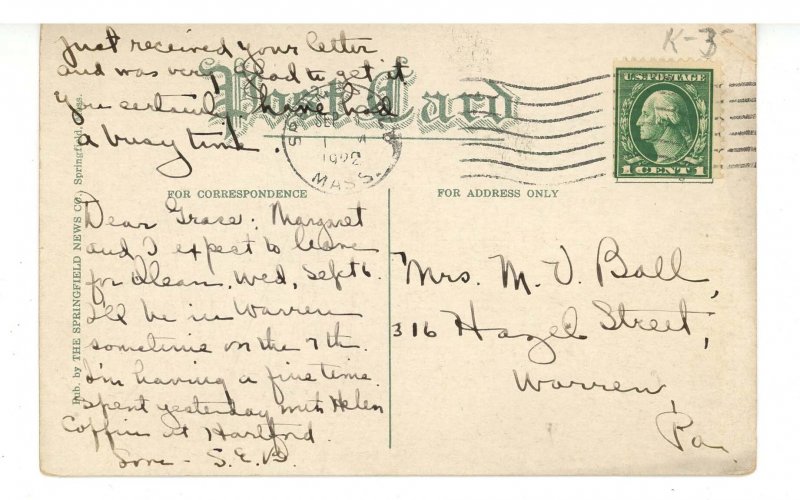 K-3
Just received your letter
and was very glad to get it
You certainly have had
a busy time.
Post Card
U.S. POSTAGE
1 CENT 1
SEP
1
1922
MASS.
FOR CORRESPONDENCE
FOR ADDRESS ONLY
Pub. by THE SPRINGFIELD NEWS CO., Springfield, Mass.
Dear Grace: Margaret
and I expect to leave
for Olean, Wed, Sept 6.
I'll be in Warren
sometime on the 7th.
I'm having a fine time.
Spent yesterday with Helen
Coffin at Hartford.
Love - S.E.B.
Mrs. M. V. Ball,
316 Hazel Street,
Warren,
Pa.